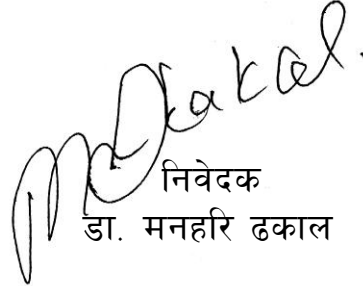 MDhakal.
निवेदक
डा. मनहरि ढकाल